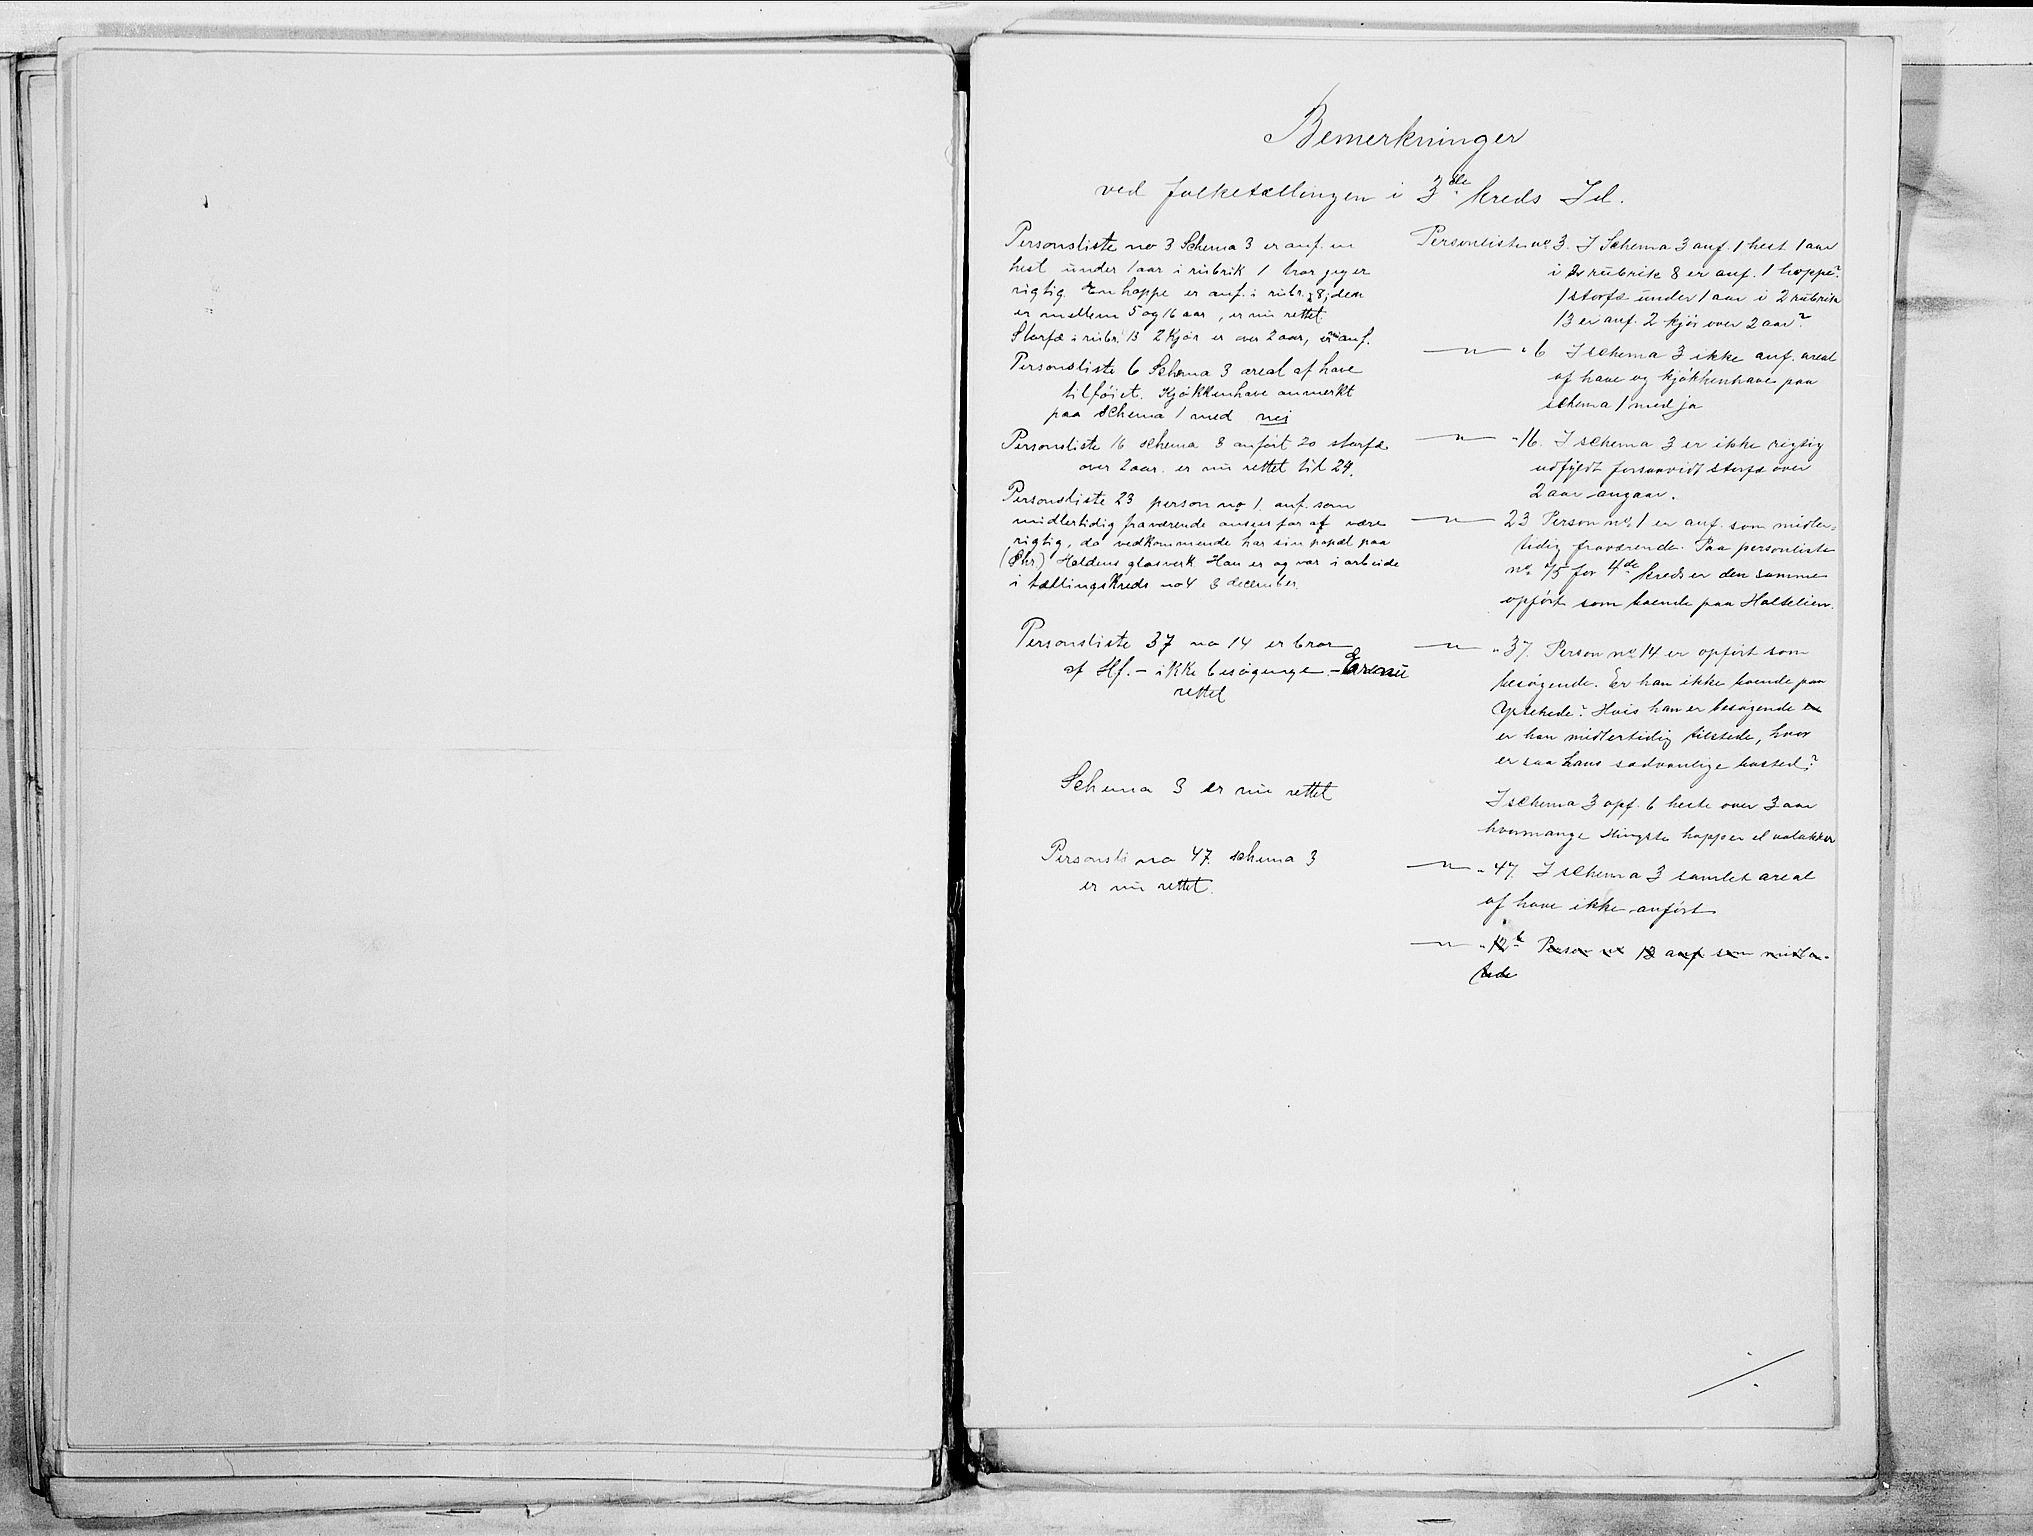 Bemerkninger
ved folketællingen i 3die kreds Id.
Personsliste no 3 Schema 3 er anf. en
hest under 1 aar i rubrik 1 tror jeg er
rigtig. En hoppe er anf. i rubr. 8, den
er mellem 5 og 16 aar, er nu rettet
Storfæ i rubr. 13 2 Kjør er over 2 aar, er nu anf.
Personsliste 6 Schema 3 areal af have
tilføiet. Kjøkkenhave anmerkt
paa schema 1 med nei
Personsliste 16 schema 3 anført 20 storfæ
over 2 aar. er nu rettet til 24.
Personsliste 23 person no 1. anf. som
midlertidig fraværende anses for at være
rigtig, da vedkommende har sin paa
Haldens glasverk Han er og var i arbeide
i tællingskreds no 4 3 december.
Personsliste 37 no 14 er bror
af Hf. - ikke besøgende. - Er nu
rettet
Schema 3 er nu rettet
Personsli no 47. schema 3
er nu rettet.
Personliste no. 3. I Schema 3 anf. 1 hest 1 aar
i rubrik 8 er anf. 1 hoppe?
1 storfæ under 1 aar i 2 rubrik
13 er anf. 2 kjør over 2 aar?
—"— " 6 I schema 3 ikke anf. areal
af have og kjøkkenhave paa
schema 1 med ja
—"— " 16. I schema 3 er ikke rigtig
udfyldt forsaavidt storfæ over
2 aar angaar.
—"— 23 Person no. 1 er anf. som midler-
tidig fraværende. Paa personliste
no. 15 for 4de kreds er den samme
opført som boende paa
—"— " 37. Person no. 14 er opført som
besøgende. Er han ikke boende paa
Hvis han er besøgende er
er han midlertidig tilstede, hvor
er saa hans sædvanlige bosted?
I schema 3 opf. 6 heste over 3 aar
hvormange Hingste hopper el valakker
—"— " 47. I schema 3 samlet areal
af have ikke anført
—"— " 12 b Person no 13 anf som midler-